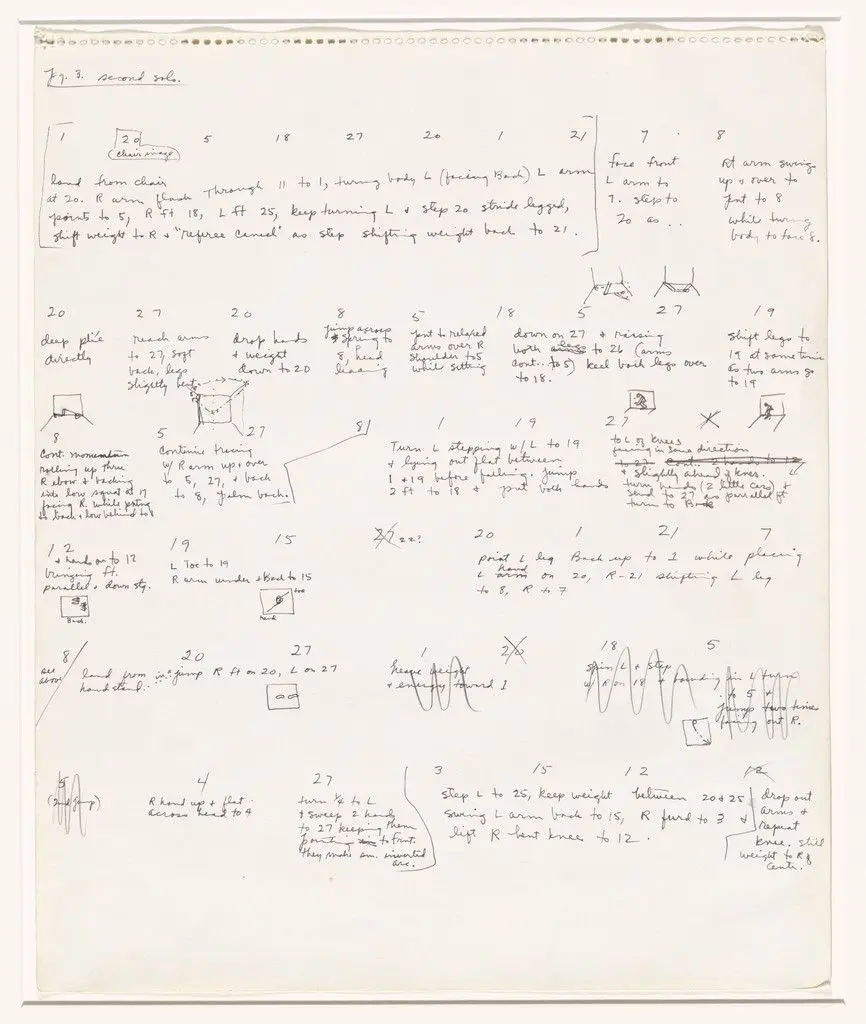 Pg. 3. second solo.
1 20 5 18 27 20 1 21 7 8
(chair image)
land from chair through 11 to 1, turning body L (facing Back) L arm
at 20. R arm flash
points to 5, R ft 18, L ft 25, keep turning L & step 20 stride legged,
shift weight to R & "referee cancel" as step shifting weight back to 21.
face front
L arm to
7. step to
20 as ..
Rt arm swings
up & over to
pnt to 8
while turning
body to face 8.
20 27 20 8 5 18 5 27 19
deep plié
directly
reach arms
to 27, sqgt
back, legs
slightly bent
drop hands
& weight
down to 20
jump across
spring to
8, head
leading
pnt to relaxed
arms over R
shoulder to 5
while sitting
down on 27 & raising
both legs to 26 (arms
cont.. to 5) keel back legs over
to 18.
shift legs to
19 at same time
as two arms go
to 19
8 5 27 8 1 19 27
Cont. momentum
rolling up thru
R elbow & backing
into low squat at 17
facing R. while pnting
to back & low behind to 8
Continue tracing
w/ R arm up & over
to 5, 27, & back
to 8, palm back.
Turn L stepping w/ L to 19
& lying out flat between
1 & 19 before falling. jump
2 ft to 18 & put both hands
to L of knees
facing in same direction
& slightly ahead of knees.
turn hands (2 little cars) &
send to 27 as parallel ft
turn to Back
12 19 15 27 22? 20 1 21 7
& hands on to 12
bringing ft.
parallel & down stg.
Back.
L Toe to 19
R arm under & Back to 15
toe
hand
point L leg Back up to 1 while placing
L hand on 20, R-21 shifting L leg
to 8, R to 7
8 20 27 1 20 18 5
see
above
land from jump R ft on 20, L on 27
hand stand...
heave weight
& energy toward 1
spin L & step
w/ R on 18 & bounding in L turn
to 5 &
jump two times
facing out R.
5 4 27 3 15 12 12
(2nd jump)
R hand up & flat
across head to 4
turn 1/4 to L
& sweep 2 hands
to 27 keeping them
pointing to frnt.
they make sm. inverted
arc.
step L to 25, keep weight between 20 & 25
swing L arm back to 15, R furd to 3 &
lift R bent knee to 12.
drop out
arms &
repeat
knee. still
weight to R of
centr.